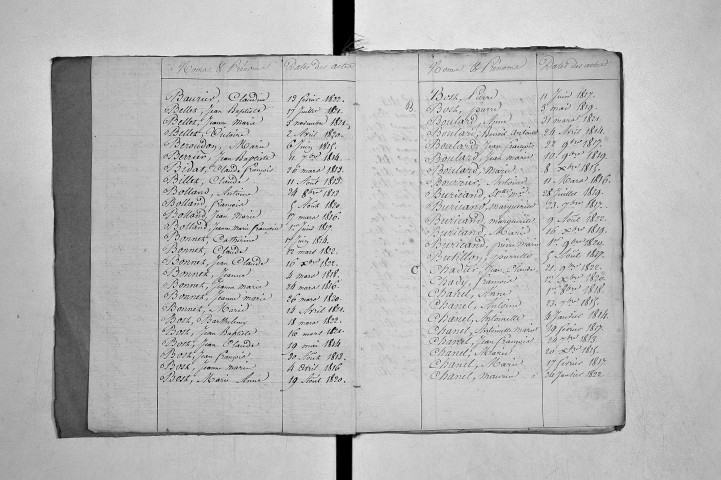 Noms & Prénoms Dates des actes
Baurier, Claudine 13 février 1822.
Bellet, Jean Baptiste 17 juillet 1821.
Bellet, Jeanne Marie 3 novembre 1821.
Bellet, 2 Avril 1820.
Beroudon, Marie 6 juin 1815.
Berrier, Jean Baptiste 11 7bre 1814.
Bidat, Claude François 26 mars 1813.
Billet, Claude 11 Août 1813.
Bolland, Antoine 24 8bre 1813
Bolland, François 5 Août 1820.
Bolland, Jean Marie 17 mars 1816.
Bolland, Jeanne Marie Françoise 1er juin 1817.
Bonnet, Catherine 1er juin 1814.
Bonnet, Claude 12 mars 1822.
Bonnet, Jean Claude 16 Xbre 1822.
Bonnet, Jeanne 4 mars 1818.
Bonnet, Jeanne marie 24 mars 1816.
Bonnet, Jeanne marie 26 mars 1820.
Bonnet, Marie 14 Avril 1821.
Bost, Barthelemy 18 mars 1822.
Bost, Jean Baptiste 16 mars 1821.
Bost, Jean Claude 19 mai 1814
Bost, Jean François 30 Août 1813.
Bost, Jeanne marie 4 Avril 1816
Bost, Marie Anne 19 Août 1820.
Noms & Prénoms Dates des actes
Bost, Pierre 11 juin 1817.
B. Bost, 3 mai 1819.
Boulard, Anne 31 mars 1821
Boulard, Benoit Antoine 24 Avril 1814.
Boulard, Jean François 22 9bre 1817.
Boulard, Jean marie 10 9bre 1819.
Boulard, Marie 8 Xbre 1815.
Bourrier, Antoine 11 Mars 1816.
Buricand, 28 juillet 1819.
Buricand, marguerite 23 7bre 1817.
Buricand, marguerite 9 Août 1822.
Buricand, Marie 16 Xbre 1819.
Buricand, pierre marie 1er 9bre 1820.
Butillon, 5 Août 1817.
C Chadier, Jean Claude 21 9bre 1822.
Chady, François 12 Xbre 1820.
Chanel, Anne 1er 8bre 1818.
Chanel, Antoine 23 7bre 1815.
Chanel, Antoinette 4 Janvier 1814.
Chanel, Antoinette marie 19 février 1817.
Chanel, Jean François 24 7bre 1813.
Chanel, Marie 20 Xbre 1815.
Chanel, Marie 17 février 1817
Chanel, maurice 24 Janvier 1822